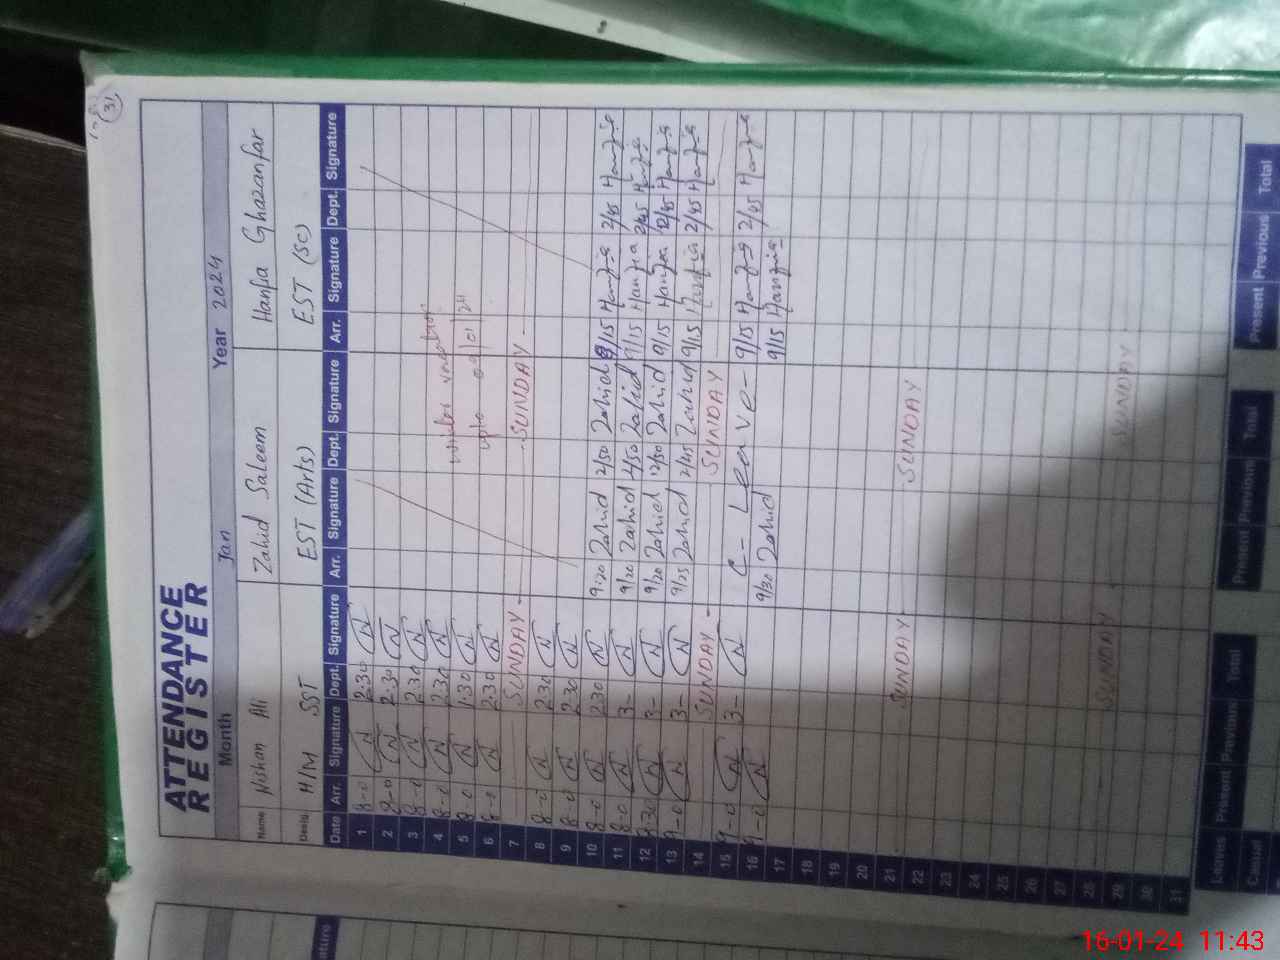 31
ATTENDANCE
REGISTER
Month Jan Year 2024
Name Nishan Ali Zahid Saleem Hanfa Ghazanfar
Desig. H/M SST EST (Arts) EST (SC)
Date Arr. Signature Dept. Signature Arr. Signature Dept. Signature Arr. Signature Dept. Signature
1 8-0 N 2.30 N
2 8-0 N 2.30 N
3 8-0 N 2.30 N
4 8-0 N 2.30 N winter vacation
5 8-0 N 1.30 N upto 09/01/24
6 8-0 N 2.30 N
7 SUNDAY - SUNDAY -
8 8-0 N 2.30 N
9 8-0 N 2.30 N
10 8-0 N 2.30 N 9:20 Zahid 2/50 Zahid 9/15 Hanzia 2/45 Hanzia
11 8-0 N 3- N 9/20 Zahid 2/50 Zahid 9/15 Hanzia 2/45 Hanzia
12 8.30 N 3- N 9/20 Zahid 12/30 Zahid 9/15 Hanzia 12/45 Hanzia
13 9-0 N 3- N 9/25 Zahid 2/45 Zahid 9/15 Hanzia 2/45 Hanzia
14 SUNDAY - SUNDAY
15 9-0 N 3- N C- Leave - 9/15 Hanzia 2/45 Hanzia
16 9-0 N 9/30 Zahid 9/15 Hanzia
17
18
19
20
21 SUNDAY SUNDAY
22
23
24
25
26
27
28 SUNDAY SUNDAY
29
30
31
Leaves Present Previous Total Present Previous Total Present Previous Total
Casual
ature
16-01-24 11:43